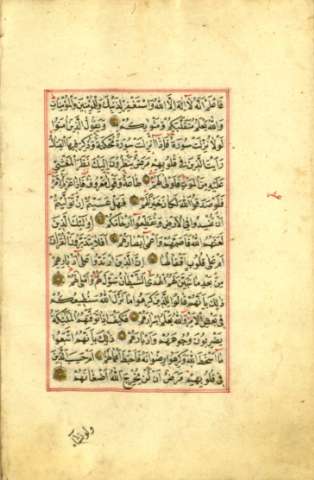 فَاعْلَمْ اَنَّهُ لَا اِلٰهَ اِلَّا اللهُ وَاسْتَغْفِرْ لِذَنْبِكَ وَلِلْمُؤْمِنِينَ وَالْمُؤْمِنَاتِ
وَاللهُ يَعْلَمُ مُتَقَلَّبَكُمْ وَمَثْوٰيكُمْ وَيَقُولُ الَّذِينَ اٰمَنُوا
لَوْلَا نُزِّلَتْ سُورَةٌ فَاِذَا اُنْزِلَتْ سُورَةٌ مُحْكَمَةٌ وَذُكِرَ فِيهَا الْقِتَالُ
رَاَيْتَ الَّذِينَ فِي قُلُوبِهِمْ مَرَضٌ يَنْظُرُونَ اِلَيْكَ نَظَرَ الْمَغْشِيِّ
عَلَيْهِ مِنَ الْمَوْتِ فَاَوْلٰى لَهُمْ طَاعَةٌ وَقَوْلٌ مَعْرُوفٌ فَاِذَا عَزَمَ الْاَمْرُ
فَلَوْ صَدَقُوا اللهَ لَكَانَ خَيْرًا لَهُمْ فَهَلْ عَسَيْتُمْ اِنْ تَوَلَّيْتُمْ
اَنْ تُفْسِدُوا فِي الْاَرْضِ وَتُقَطِّعُوا اَرْحَامَكُمْ اُولٰئِكَ الَّذِينَ
لَعَنَهُمُ اللهُ فَاَصَمَّهُمْ وَاَعْمٰى اَبْصَارَهُمْ اَفَلَا يَتَدَبَّرُونَ الْقُرْاٰنَ
اَمْ عَلٰى قُلُوبٍ اَقْفَالُهَا اِنَّ الَّذِينَ ارْتَدُّوا عَلٰى اَدْبَارِهِمْ
مِنْ بَعْدِ مَا تَبَيَّنَ لَهُمُ الْهُدَى الشَّيْطَانُ سَوَّلَ لَهُمْ وَاَمْلٰى لَهُمْ
ذٰلِكَ بِاَنَّهُمْ قَالُوا لِلَّذِينَ كَرِهُوا مَا نَزَّلَ اللهُ سَنُطِيعُكُمْ
فِي بَعْضِ الْاَمْرِ وَاللهُ يَعْلَمُ اِسْرَارَهُمْ فَكَيْفَ اِذَا تَوَفَّتْهُمُ الْمَلٰئِكَةُ
يَضْرِبُونَ وُجُوهَهُمْ وَاَدْبَارَهُمْ ذٰلِكَ بِاَنَّهُمُ اتَّبَعُوا
مَا اَسْخَطَ اللهَ وَكَرِهُوا رِضْوَانَهُ فَاَحْبَطَ اَعْمَالَهُمْ اَمْ حَسِبَ الَّذِينَ
فِي قُلُوبِهِمْ مَرَضٌ اَنْ لَنْ يُخْرِجَ اللهُ اَضْغَانَهُمْ
ولو نشاء